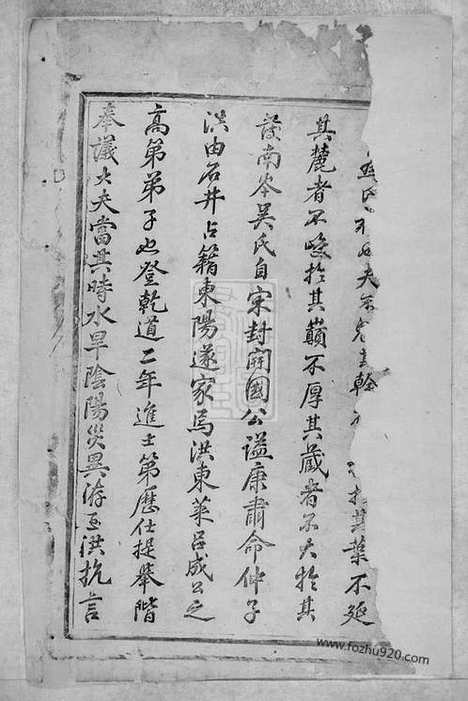 其葉不延
其麓者不峻於其巔不厚其藏者不大於其
發南岑吳氏自宋封開國公謚康肅命仲子
洪由石井占籍東陽遂家焉洪東萊呂成公之
高第弟子也登乾道二年進士第歷仕提舉階
奉議大夫當其時水旱陰陽災異洊至洪抗言
www.fozhu920.com